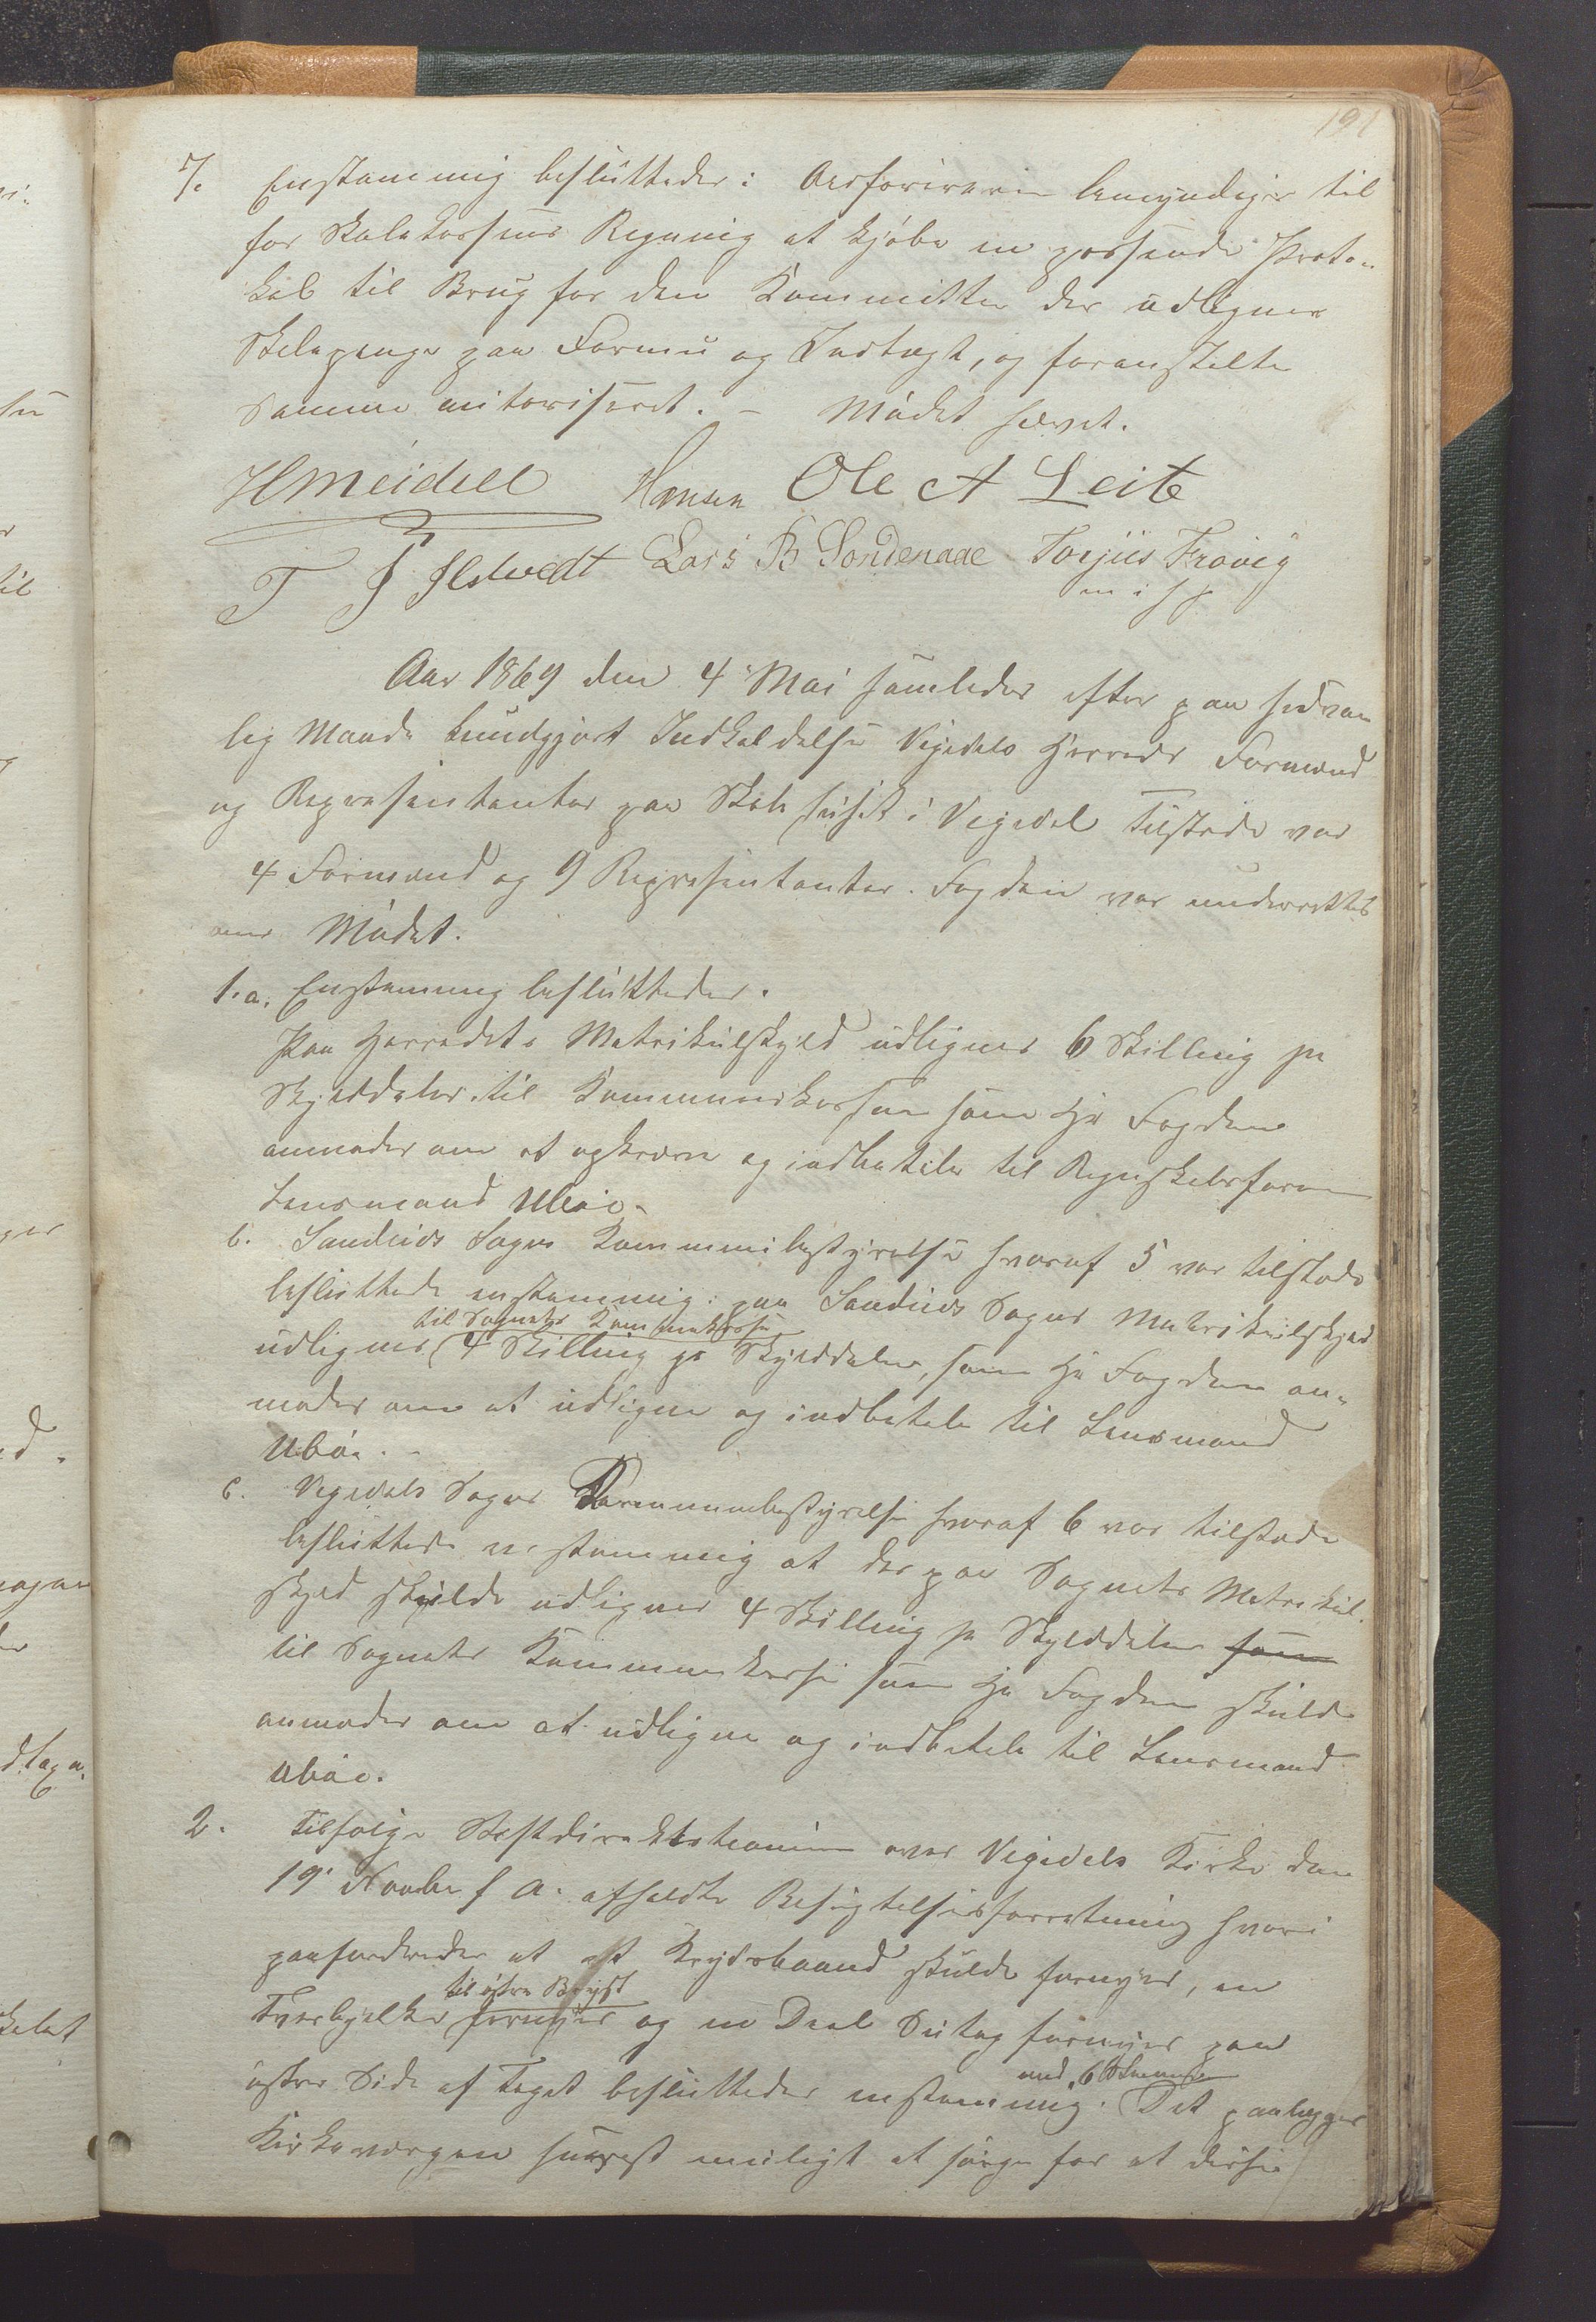 191
7. Enstemmig besluttedes: Ordføreren bemyndiges til
for Skolekassens Regning at kjøbe en passende Proto-
kol til Brug for den Kommitte der udligner
Skolepenge paa Formue og Indtægt, og foranstalte
samme autoriseret. – Mødet hævet.
HMeidell Hansen Ole A Leite
T J Ilstvedt Lars B Søndenaae Torjus Frøvig
m i f p
Aar 1869 den 4 Mai samledes efter paa sædvan
lig Maade kundgjort Indkaldelse Vigedals Herreds Formænd
og Representanter paa Skolehuset i Vigedal Tilstede var
4 Formænd og 9 Representanter. Fogden var underrettet
om Mødet.
1.a. Enstemmig besluttedes.
Paa Herredets Matrikulskyld udlignes 6 Skilling pr
Skylddaler til Kommunekassen som Hr Fogden
anmodes om at opkræve og indbetale til Regnskabsfører
Lensmand Ubøe.
b. Sandeids Sogns Kommunebestyrelse hvoraf 5 var tilstede
besluttede enstemmig: paa Sandeids Sogns Matrikulskyld
til Sognets Kommunekasse
udlignes 4 Skilling pr Skylddaler, som Hr Fogden an-
modes om at udligne og indbetale til Lensmand
Ubøe. -
c. Vigedals Sogns Kommunebestyrelse hvoraf 6 var tilstede
besluttede enstemmig at der paa Sognets Matrikul-
skyld skulde udlignes 4 Skilling pr Skylddaler som
til Sognets Kommunekasse som Hr Fogden skulde
anmodes om at udligne og indbetale til Lensmand
Ubøe.
2. Tilfølge Stiftdirektionens over Vigedals Kirke den
19 Novbr f A. afholdte Besigtelsesforretning hvori
paafordredes at et Krydsbaand skulde fornyes, en
til østre Bryst
Tverbjelke fornyes og en Deel Sutag fornyes paa
østre Side af Taget besluttedes enstemmig. Det paalægges
med 6 Stemmer
Kirkeværgen snarest muligt at sørge for at disse